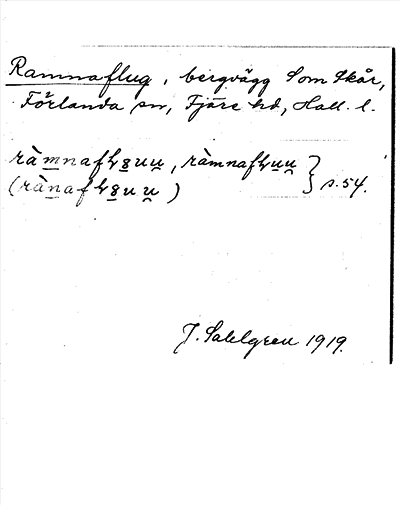 Ramnaflug, bergvägg Som Skår,
Förlanda sn, Fjäre hd, Hall. l.
ràm̲nafɫꞡ̲uu̯, ràmnafɫu̲u̯ } s. 54.
(ràn̲afɫꞡ̲uu̯)
J. Sahlgren 1919.